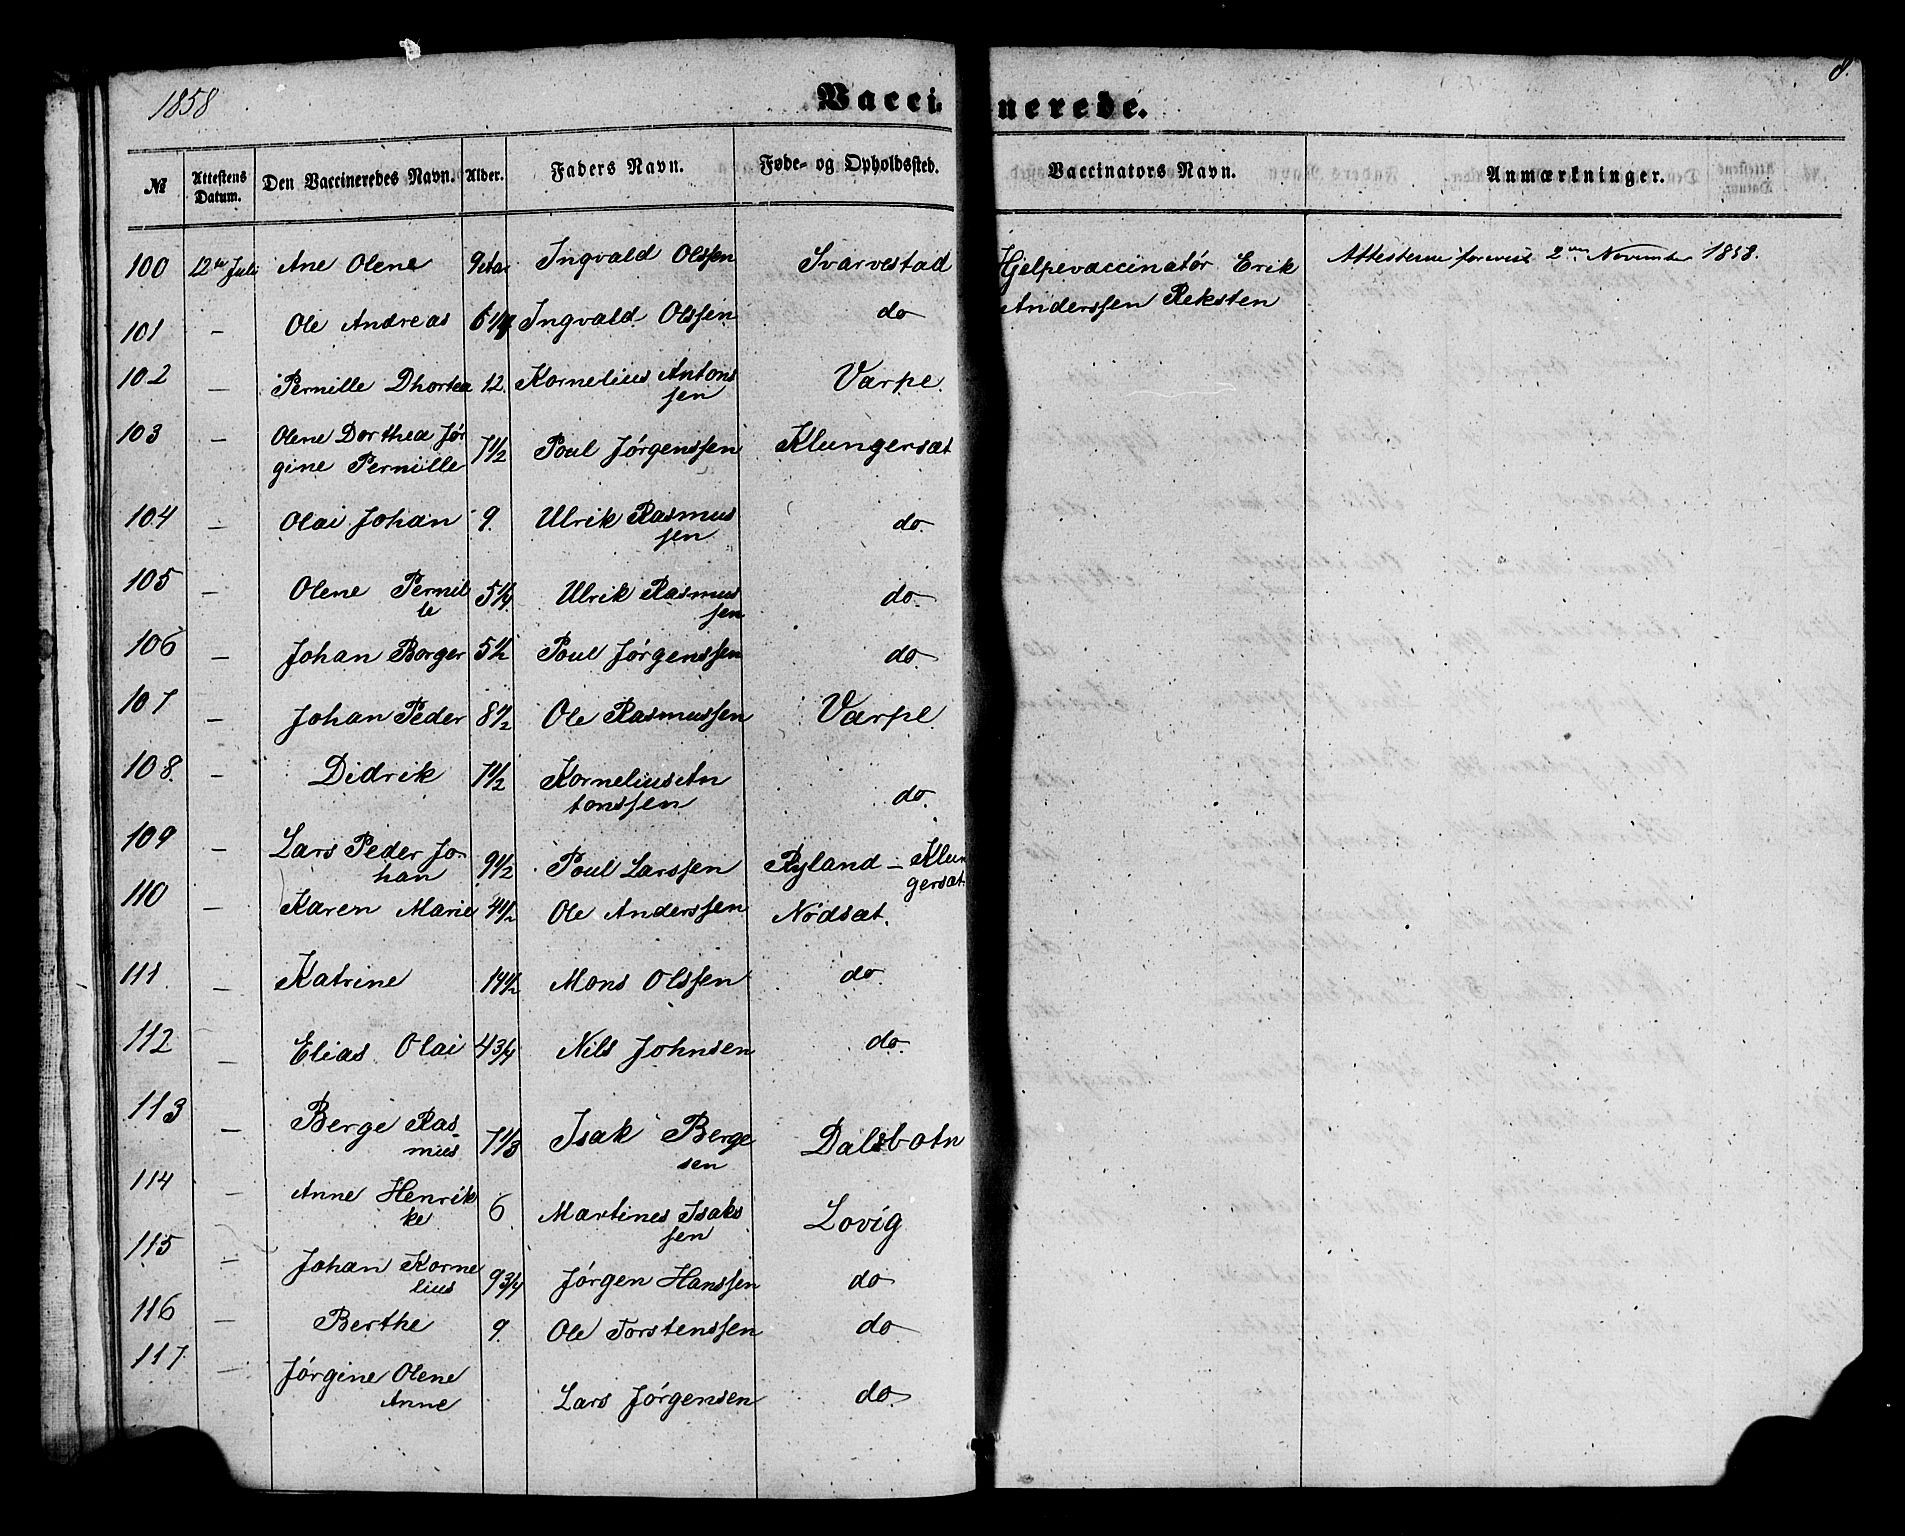 1858
Vaccinerede.
8.
№ Attestens Datum. Den Vaccineredes Navn. Alder. Faders Navn. Føde- og Opholdssted. Vaccinators Navn. Anmærkninger.
100 12te Juli Ane Olene 9 Aar Ingvald Olssen Svarvestad Hjelpevaccinatór Erik Anderssen Reksten Attesterne foreviist 2den November 1858.
101 — Ole Andreas 6 Ingvald Olssen do
102 — Pernille Dhortea 12. Kornelius Antonssen Varpe.
103 — Olene Dorthea Jørgine Pernille 7 1/2 Poul Jørgenssen Klungersæt
104 — Olai Johan 9. Ulrik Rasmussen do.
105 — Olene Pernille 5 1/4 Ulrik Rasmussen do.
106 — Johan Borger 5 1/2 Poul Jørgenssen do.
107 — Johan Peder 8 1/2 Ole Rasmussen Varpe.
108. — Didrik 7 1/2 Kornelius Antonssen do.
109 — Lars Peder Johan 9 1/2 Poul Larssen Ryland – Klungersæt.
110 — Karen Marie 4 1/2 Ole Anderssen Nødsæt.
111. — Katrine 14 1/2 Mons Olssen do.
112 — Elias Olai 4 3/4 Nils Johnsen do.
113 — Berge Rasmus 7 1/3 Isak Bergesen Dalsbotn
114 — Anne Henrikke 6 Martines Isakssen Lovig
115 — Johan Kornelius 9 3/4 Jørgen Hanssen do
116 — Berthe 9. Ole Torstenssen do
117. — Jørgine Olene Anne Lars Jørgensen do.